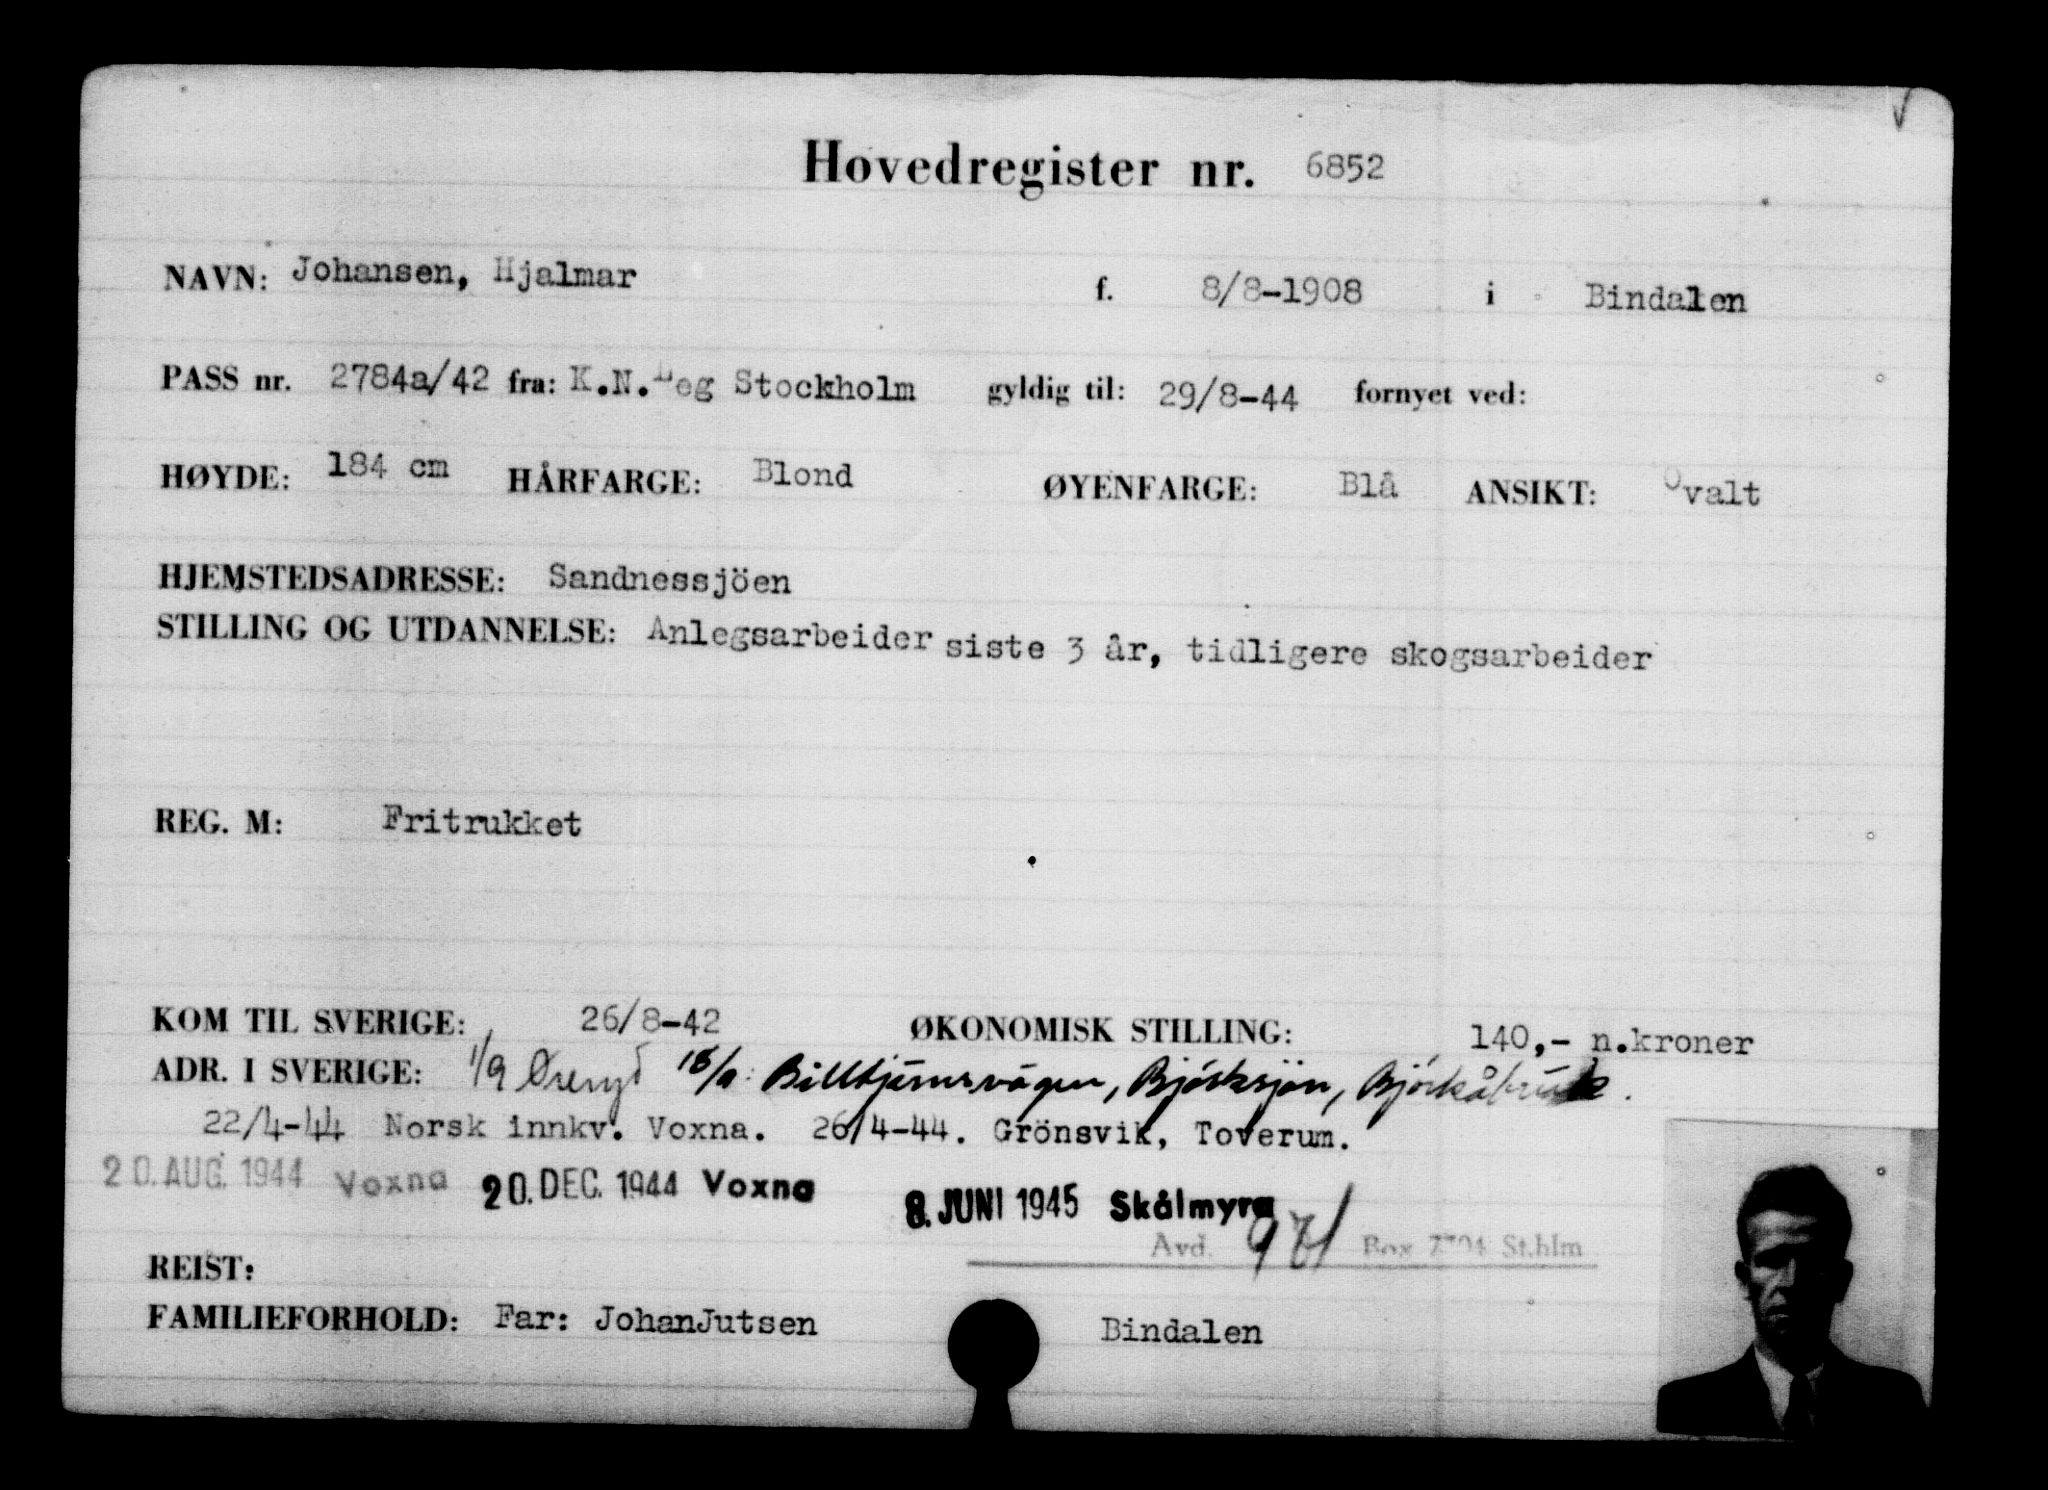 Hovedregister nr. 6852
NAVN: Johansen, Hjalmar f. 8/8-1908 i Bindalen
PASS nr. 2784a/42 fra: K.N.Leg Stockholm gyldig til: 29/8-44 fornyet ved:
HØYDE: 184 cm HÅRFARGE: Blond ØYENFARGE: Blå ANSIKT: Ovalt
HJEMSTEDSADRESSE: Sandnessjöen
STILLING OG UTDANNELSE: Anlegsarbeider siste 3 år, tidligere skogsarbeider
REG. M: Fritrukket
KOM TIL SVERIGE: 26/8-42 ØKONOMISK STILLING: 140,- n.kroner
ADR. I SVERIGE: 1/9 Öreryd 18/9: Billtjärnsvägen, Björksjön, Björkåbruk.
22/4-44 Norsk innkv. Voxna. 26/4-44. Grönsvik, Toverum.
20. AUG. 1944 Voxna 20. DEC. 1944 Voxna 8. JUNI 1945 Skålmyra
Avd. 971 Box St.hlm
REIST:
FAMILIEFORHOLD: Far: JohanJutsen Bindalen